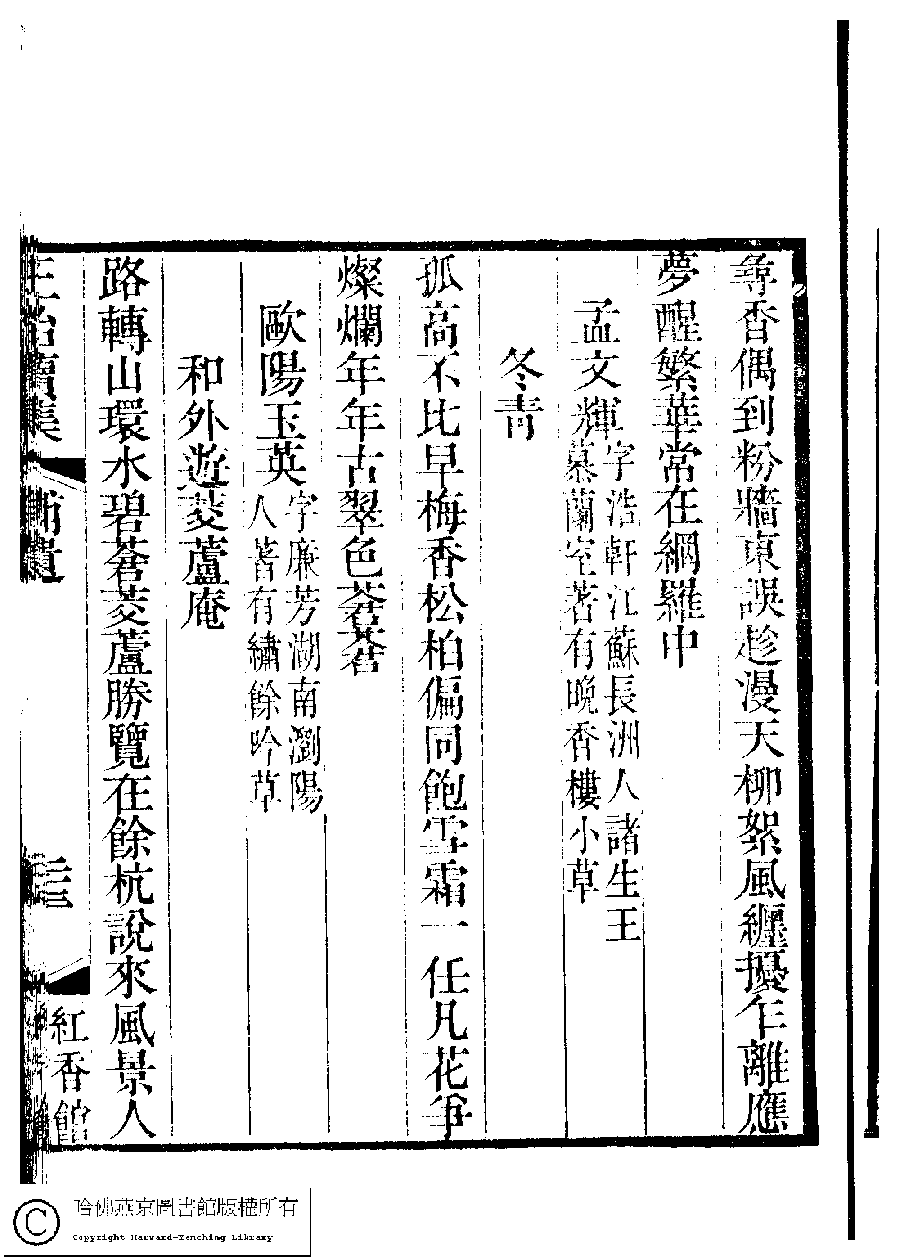 尋香偶到粉牆東誤趁漫天柳絮風纏擾乍離應
夢醒繁華常在網羅中
孟文輝字浩軒江蘇長洲人諸生王
慕蘭室著有晚香樓小草
冬青
孤高不比早梅香松柏偏同飽雪霜一任凡花爭
燦爛年年古翠色蒼蒼
歐陽玉英字廉芳湖南瀏陽
人著有繡餘吟草
和外遊茭蘆庵
路轉山環水碧蒼茭蘆勝覽在餘杭說來風景人
補遺
三
紅香館
哈佛燕京圖書館版權所有
Copyright Harvard-Yenching Library